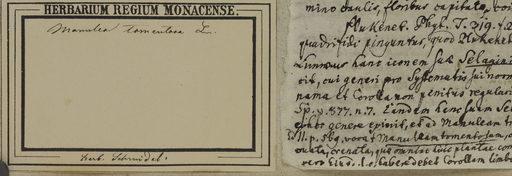 HERBARIUM REGIUM MONACENSE.
Manulea tomentosa L.
Herb. Schmidel.
mino caulis, floribus capitato,
Plukenet. Phyt. T. 319. f. 2
quadrifidi pinguntur, quod Plukenet
hanc iconem suae Selagini
cit, cui generi pro Systematis sui norm
nama et Corolla non penitus regulari
Sp. p. 877. n. 7. Eandem hanc suam Sel
genere eripuit, et ad Manuleam t
II. p. 569. vocat Manuleam tomentosam,
crenata, quae omnino huic plantae con
vero Eius d. l. habere debet Corollam limbo